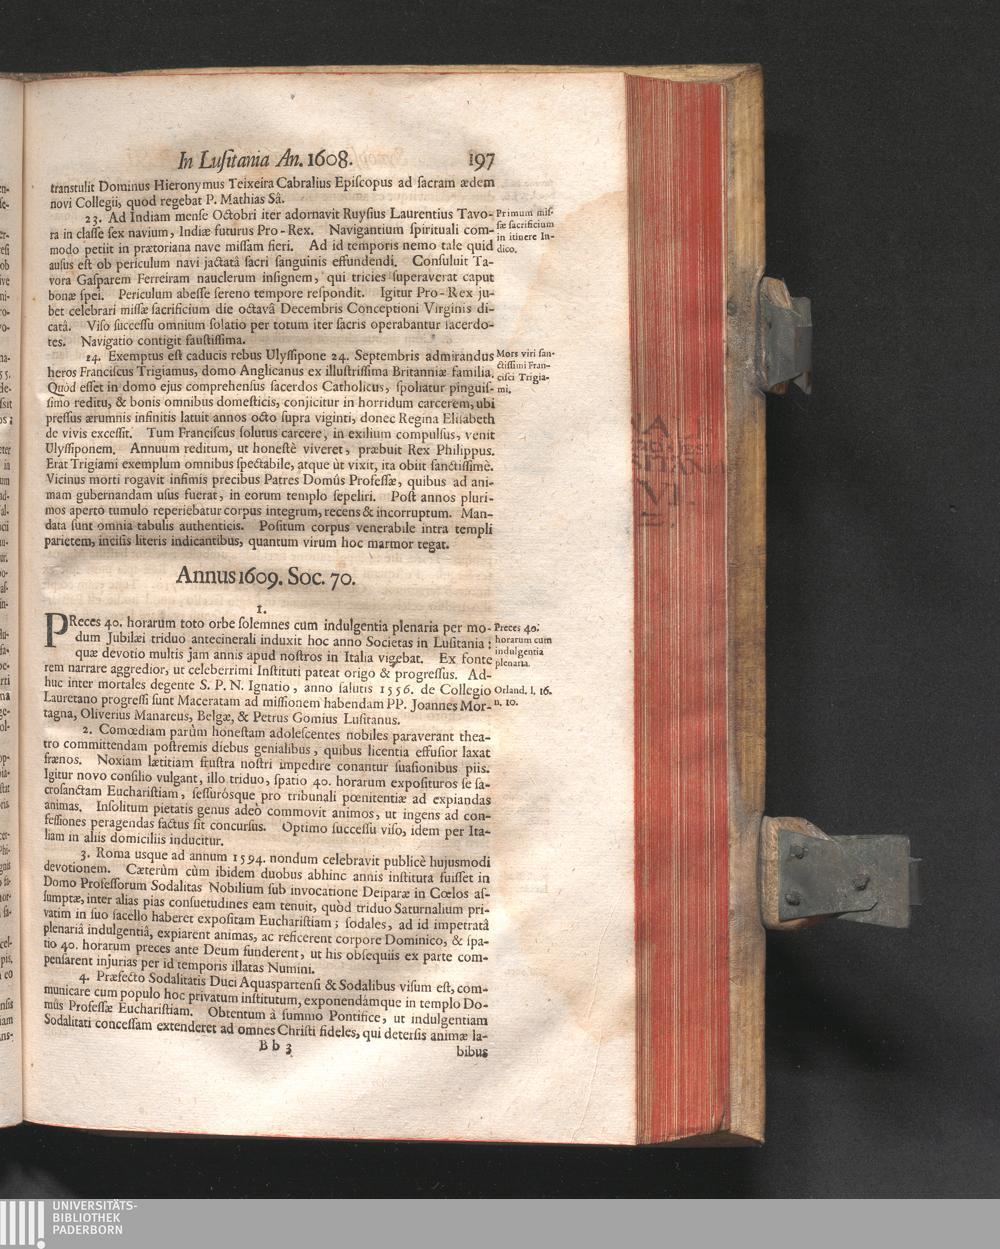 In Luſitania An. 1608. 197
transtulit Dominus Hieronymus Teixeira Cabralius Epiſcopus ad ſacram ædem
novi Collegii, quod regebat P. Mathias Sâ.
23. Ad Indiam menſe Octobri iter adornavit Ruyſius Laurentius Tavo-
ra in claſſe ſex navium, Indiæ futurus Pro-Rex. Navigantium ſpirituali com-
modo petiit in prætoriana nave miſſam fieri. Ad id temporis nemo tale quid
auſus eſt ob periculum navi jactatâ ſacri ſanguinis effundendi. Conſuluit Ta-
vora Gaſparem Ferreiram nauclerum inſignem, qui tricies ſuperaverat caput
bonæ ſpei. Periculum abeſſe ſereno tempore reſpondit. Igitur Pro-Rex ju-
bet celebrari miſſæ ſacrificium die octavâ Decembris Conceptioni Virginis di-
catâ. Viſo ſucceſſu omnium ſolatio per totum iter ſacris operabantur ſacerdo-
tes. Navigatio contigit fauſtiſſima.
Primum miſ-
ſæ ſacrificium
in itinere In-
dico.
24. Exemptus eſt caducis rebus Ulyſſipone 24. Septembris admirandus
heros Franciſcus Trigiamus, domo Anglicanus ex illuſtriſſima Britanniæ familia.
Quòd eſſet in domo ejus comprehenſus ſacerdos Catholicus, ſpoliatur pinguiſ-
ſimo reditu, & bonis omnibus domeſticis, conjicitur in horridum carcerem, ubi
preſſus ærumnis infinitis latuit annos octo ſupra viginti, donec Regina Eliſabeth
de vivis exceſſit. Tum Franciſcus ſolutus carcere, in exilium compulſus, venit
Ulyſſiponem. Annuum reditum, ut honeſtè viveret, præbuit Rex Philippus.
Erat Trigiami exemplum omnibus ſpectabile, atque ùt vixit, ita obiit ſanctiſſimè.
Vicinus morti rogavit infimis precibus Patres Domûs Profeſſæ, quibus ad ani-
mam gubernandam uſus fuerat, in eorum templo ſepeliri. Poſt annos pluri-
mos aperto tumulo reperiebatur corpus integrum, recens & incorruptum. Man-
data ſunt omnia tabulis authenticis. Poſitum corpus venerabile intra templi
parietem, inciſis literis indicantibus, quantum virum hoc marmor tegat.
Mors viri ſan-
ctiſſimi Fran-
ciſci Trigia-
mi.
Annus 1609. Soc. 70.
1.
PReces 40. horarum toto orbe ſolemnes cum indulgentia plenaria per mo-
dum Jubilæi triduo antecinerali induxit hoc anno Societas in Luſitania:
quæ devotio multis jam annis apud noſtros in Italia vigebat. Ex fonte
rem narrare aggredior, ut celeberrimi Inſtituti pateat origo & progreſſus. Ad-
huc inter mortales degente S. P. N. Ignatio, anno ſalutis 1556. de Collegio
Lauretano progreſſi ſunt Maceratam ad miſſionem habendam PP. Joannes Mor-
tagna, Oliverius Manareus, Belgæ, & Petrus Gomius Luſitanus.
Preces 40.
horarum cum
indulgentia
plenaria.
Orland. l. 16.
n. 10.
2. Comœdiam parùm honeſtam adoleſcentes nobiles paraverant thea-
tro committendam poſtremis diebus genialibus, quibus licentia effuſior laxat
frænos. Noxiam lætitiam fruſtra noſtri impedire conantur ſuaſionibus piis.
Igitur novo conſilio vulgant, illo triduo, ſpatio 40. horarum expoſituros ſe ſa-
croſanctam Euchariſtiam, ſeſſurósque pro tribunali pœnitentiæ ad expiandas
animas. Inſolitum pietatis genus adeò commovit animos, ut ingens ad con-
feſſiones peragendas factus ſit concurſus. Optimo ſucceſſu viſo, idem per Ita-
liam in aliis domiciliis inducitur.
3. Roma usque ad annum 1594. nondum celebravit publicè hujusmodi
devotionem. Cæterùm cùm ibidem duobus abhinc annis inſtituta fuiſſet in
Domo Profeſſorum Sodalitas Nobilium ſub invocatione Deiparæ in Cœlos aſ-
ſumptæ, inter alias pias conſuetudines eam tenuit, quòd triduo Saturnalium pri-
vatim in ſuo ſacello haberet expoſitam Euchariſtiam; ſodales, ad id impetratâ
plenariâ indulgentiâ, expiarent animas, ac reficerent corpore Dominico, & ſpa-
tio 40. horarum preces ante Deum funderent, ut his obſequiis ex parte com-
penſarent injurias per id temporis illatas Numini.
4. Præfecto Sodalitatis Duci Aquaspartenſi & Sodalibus viſum eſt, com-
municare cum populo hoc privatum inſtitutum, exponendámque in templo Do-
mûs Profeſſæ Euchariſtiam. Obtentum à ſummo Pontifice, ut indulgentiam
Sodalitati conceſſam extenderet ad omnes Chriſti fideles, qui deterſis animæ la-
B b 3 bibus
UNIVERSITÄTS-
BIBLIOTHEK
PADERBORN